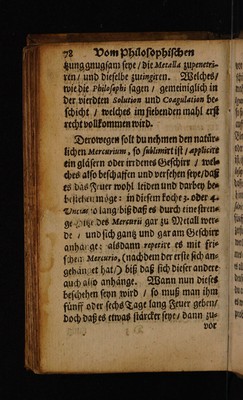 78 Vom Philosophischen
tzung gnugsam seye / die Metalla zu penetri-
ren / und dieselbe zu tingiren. Welches /
wie die Philosophi sagen / gemeiniglich in
der vierdten Solution und Coagulation be-
schicht / welches im siebenden mahl erst
recht vollkommen wird.
Derowegen solt du nehmen den natür-
lichen Mercurium, so sublimirt ist / applicire
ein gläsern oder irrdenes Geschirr / wel-
ches also beschaffen und versehen seye / daß
es das Feuer wohl leiden und darbey be-
bestehen möge: in diesem koche 3. oder 4.
Uncias so lang biß daß es durch eine stren-
ge Hitze des Mercurii gar zu Metall wer-
de / und sich gantz und gar am Geschirr
anhange: alsdann repetire es mit fri-
schem Mercurio, (nachdem der erste sich an-
gehänget hat /) biß daß sich dieser andere
auch also anhänge. Wann nun dieses
beschehen seyn wird / so muß man ihm
fünff oder sechs Tage lang Feuer geben /
doch daß es etwas stärcker seye / dann zu-
vor